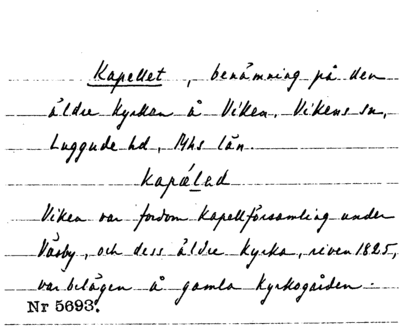 Kapellet, benämning på den
äldre kyrkan å Viken, Vikens sn,
Luggude hd, Mhs län.
kapäled
Viken var fordom kapellförsamling under
Väsby, och dess äldre kyrka, riven 1825,
var belägen å gamla kyrkogården.
Nr 5693.